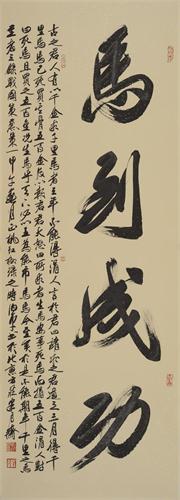 馬到成功
古之君人有以千金求千里馬者三年不能得涓人言於君曰請求之君遣之三月得千
里馬馬已死買其骨五百金反以報君君大怒曰所求者生馬安事死馬而捐五百金涓人對
曰死馬且買之五百金況生馬乎天下必以王為能市馬馬今至矣於是不能期年千里之馬
至者三錄戰國策燕策一甲午 月正桃紅柳綠之時 於北京